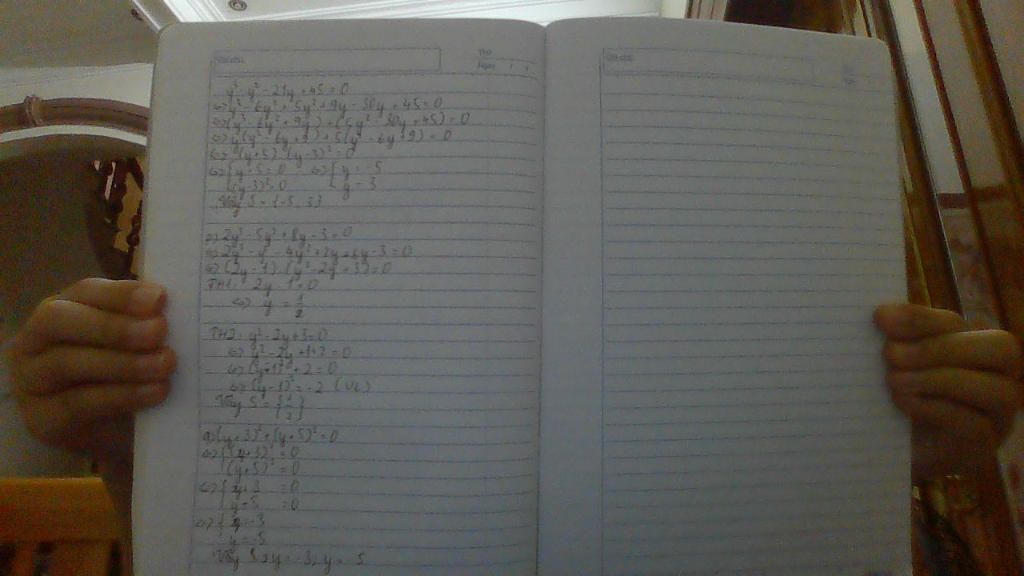 y³ - y² - 21y + 45 = 0
⇔ y³ - 6y² + 5y² + 9y - 30y + 45 = 0
⇔ (y³ - 6y² + 9y) + (5y² - 30y + 45) = 0
⇔ y(y² - 6y + 9) + 5(y² - 6y + 9) = 0
⇔ (y+5) (y-3)² = 0
⇔ [ y + 5 = 0 ⇔ [ y = -5
(y-3)² = 0 y = 3
Vậy S = {-5, 3}
2y³ - 5y² + 8y - 3 = 0
⇔ 2y³ - y² - 4y² + 2y + 6y - 3 = 0
⇔ (2y - 1) (y² - 2y + 3) = 0
TH1: 2y - 1 = 0
⇔ y = 1/2
TH2: y² - 2y + 3 = 0
⇔ y² - 2y + 1 + 2 = 0
⇔ (y-1)² + 2 = 0
⇔ (y-1)² = -2 (VL)
Vậy S = {1/2}
(y+3)² + (y+5)² = 0
⇔ { (y+3)² = 0
(y+5)² = 0
⇔ { y+3 = 0
y+5 = 0
⇔ { y = -3
y = -5
Vậy y = -3, y = -5